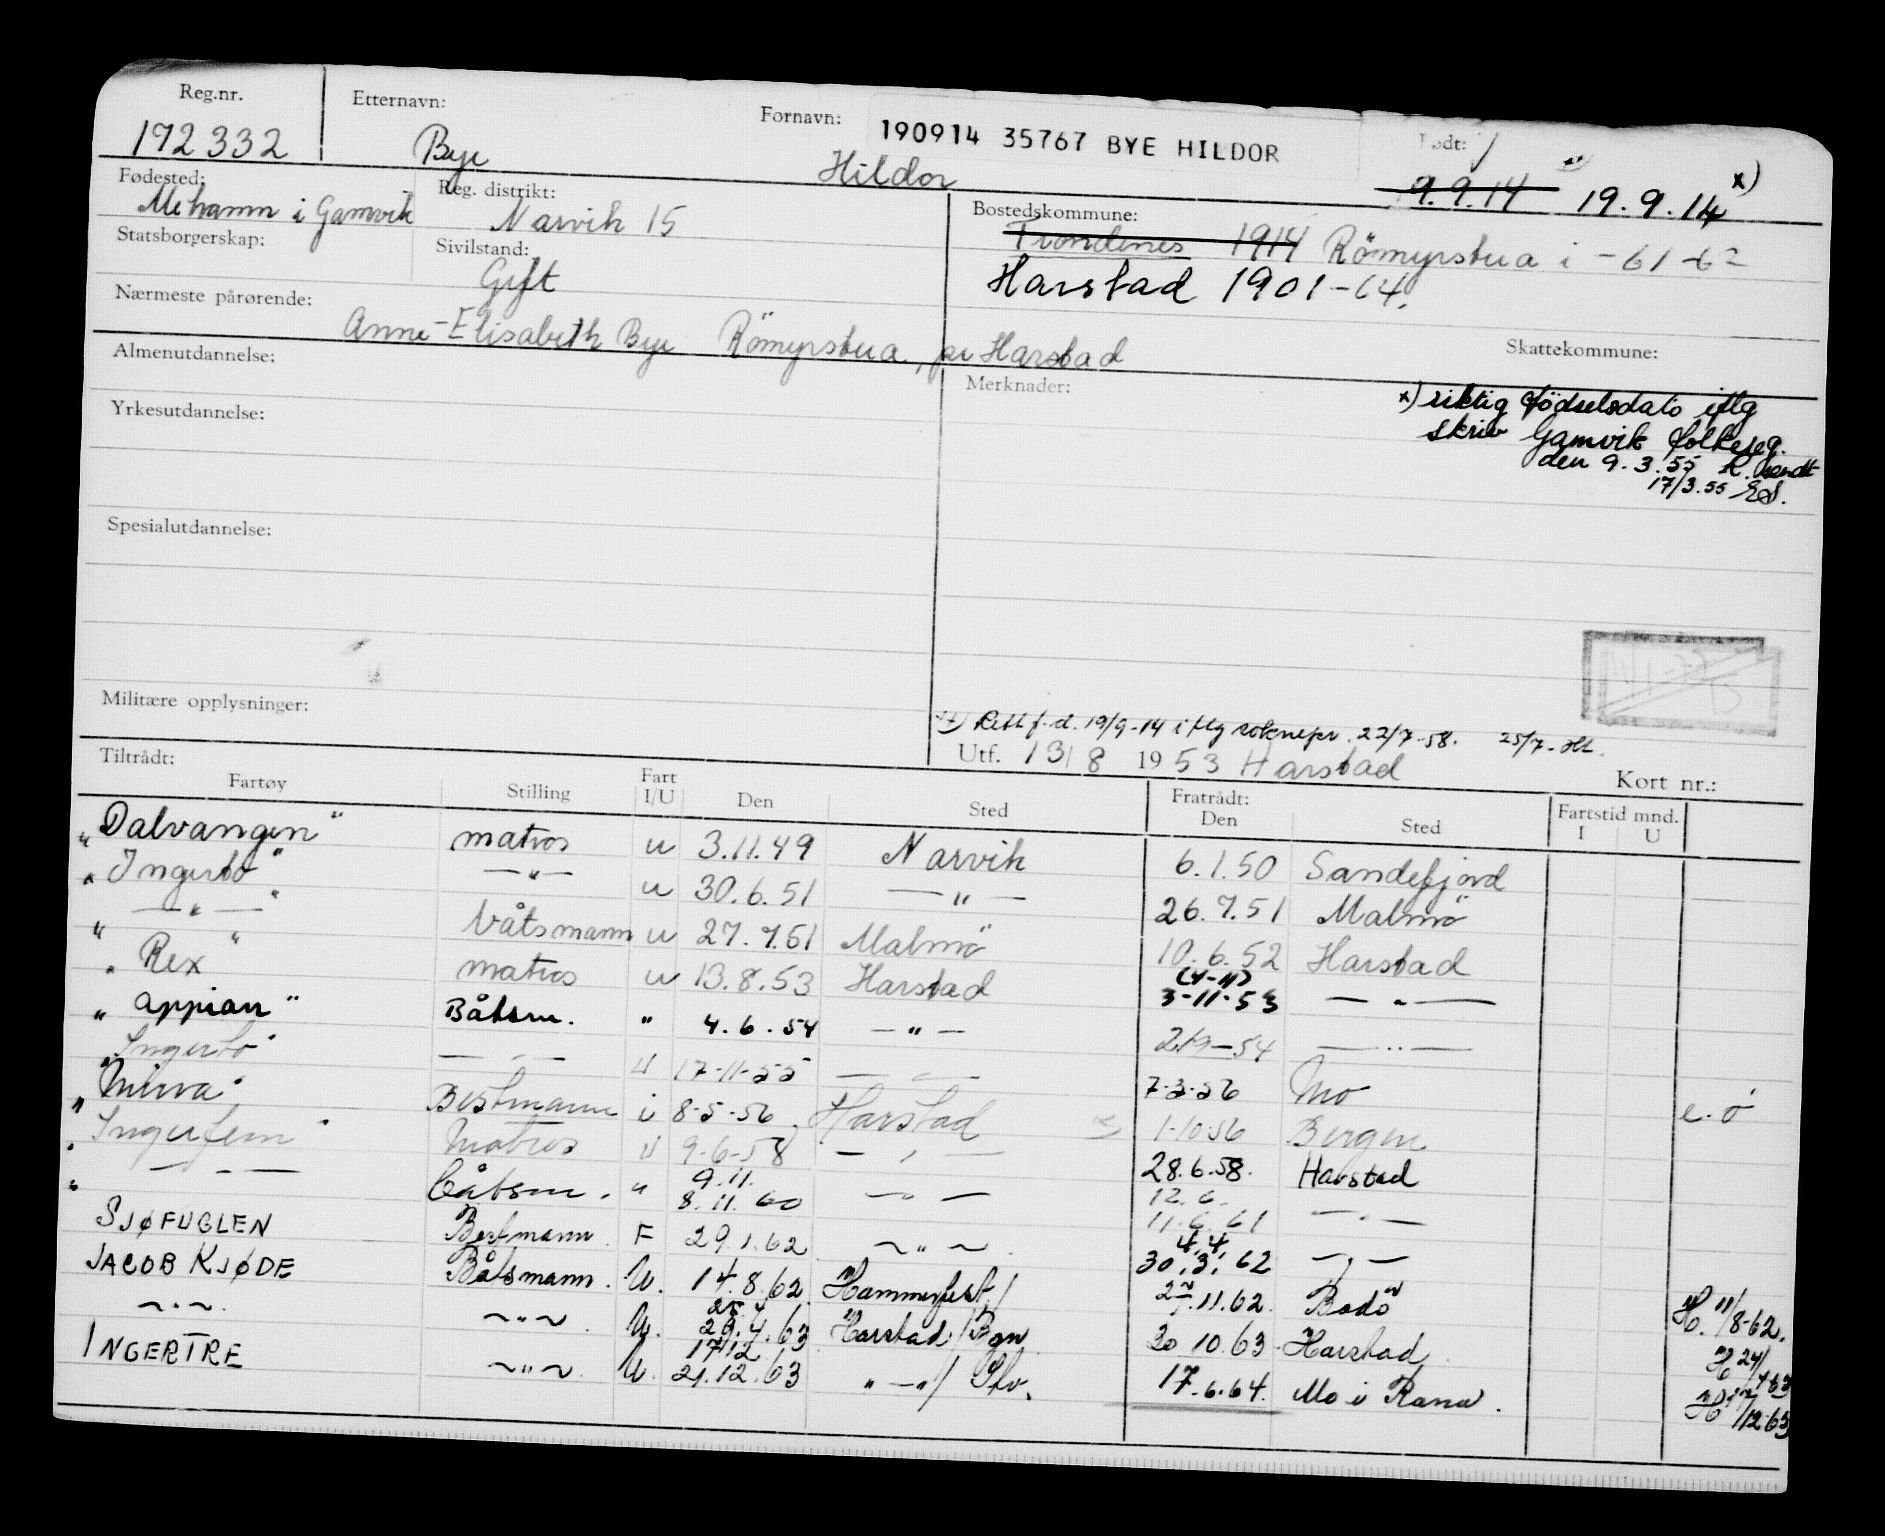 Reg.nr. Etternavn: Fornavn: 190914 35767 BYE HILDOR Født:
172332 Bye Hildor 9.9.14 19.9.14 x)
Fødested: Reg. distrikt: Bostedskommune:
Mehamn i Gamvik Narvik 15 Trondenes 1914 Römyrstua i -61-62
Statsborgerskap: Sivilstand:
Gift Harstad 1901-64.
Nærmeste pårørende:
Anne-Elisabeth Bye Römyrstua, pr Harstad
Almenutdannelse: Skattekommune:
Merknader:
x) riktig födselsdato iflg
skriv Gamvik folkereg.
den 9.3.55
17/3.55
Yrkesutdannelse:
Spesialutdannelse:
Militære opplysninger:
Rett f.d. 19/9-14 iflg soknepr. 22/7-58. 25/7-
Utf. 13/8 1953 Harstad Kort nr.:
Tiltrådt: Fratrådt: Fartstid mnd.
Fartøy Stilling Fart I/U Den Sted Den Sted I U
"Dalvangen" matros u 3.11.49 Narvik 6.1.50 Sandefjord
"Ingerto" —"— u 30.6.51 —"— 26.7.51 Malmö
" —"— " båtsmann u 27.7.51 Malmö 10.6.52 Harstad
" Rex " matros u 13.8.53 Harstad (4-11) 3-11-53 —"—
" Appian " Båtsm. " 4.6.54 —"— 2/9-54 —"—
" Ingerto " —"— U 17-11-55 —"— 7-3-56 Mo
" Minva " Bestmann i 8-5-56 Harstad 1-10-56 Bergen e.o
" Ingerfem " Matros U 9-6-58 —"— 28.6.58. Harstad
" —"— båtsm. " 9.11. 8.11.60 —"— 12.6. 11.6.61 —"—
SJØFUGLEN Bestmann. F 29.1.62 —"— 4.4. 30.3.62 —"—
JACOB KJØDE Båtsmann. U. 14.8.62 Hammerfest/ 27.11.62. Bodö H. 11/8-62.
—"—. —"—. U. 25.4. 29.4.63 Harstad/Bgn 30.10.63. Harstad H 24/4 63
INGERTRE —"—. U. 17.12 21.12.63 "—"/ Stv. 17.6.64. Mo i Rana. H 17/12-63